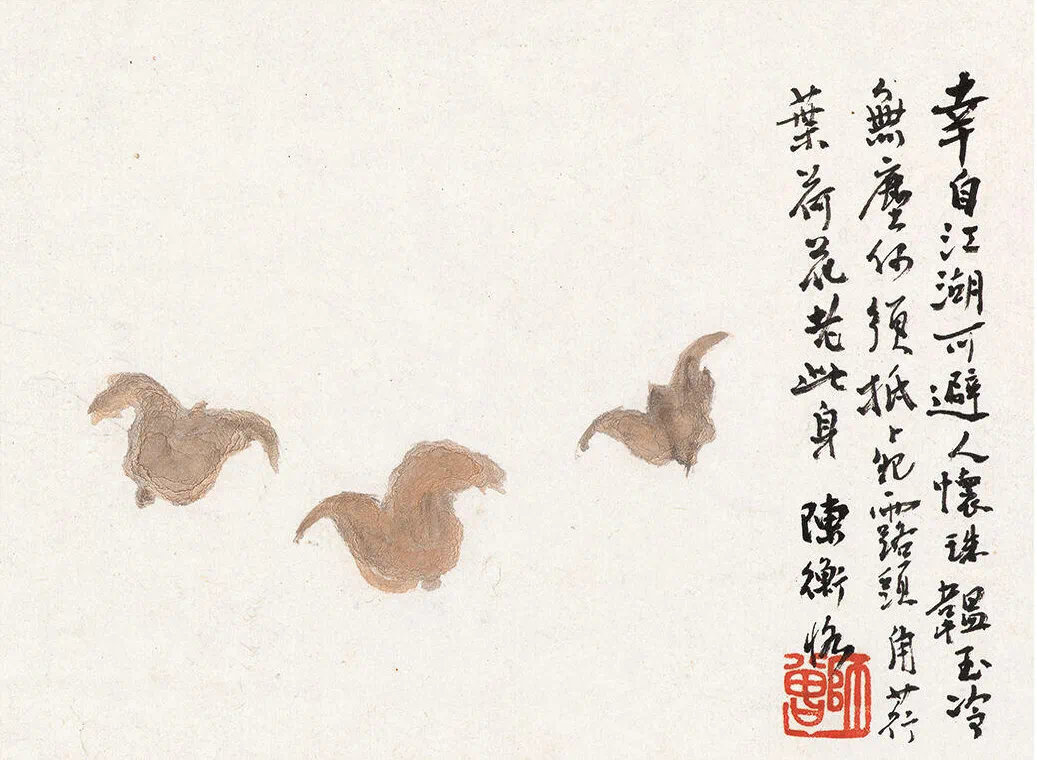 幸自江湖可避人懷珠韞玉冷
無塵何須抵死露頭角荇
葉荷花老此身 陳衡恪
師曾